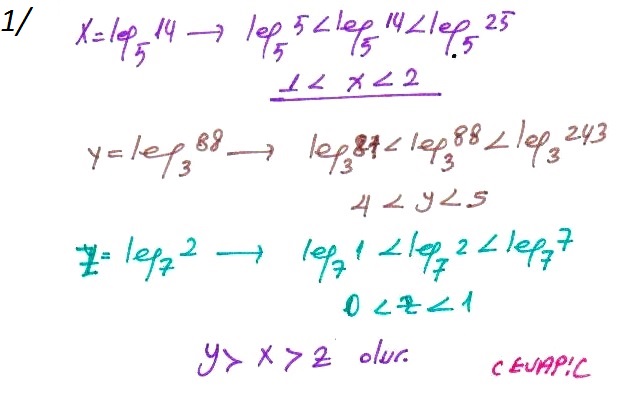 1/ x = log₅14 → log₅5 < log₅14 < log₅25
1 < x < 2
y = log₃88 → log₃81 < log₃88 < log₃243
4 < y < 5
z = log₇2 → log₇1 < log₇2 < log₇7
0 < z < 1
y > x > z olur.
CEVAP: C